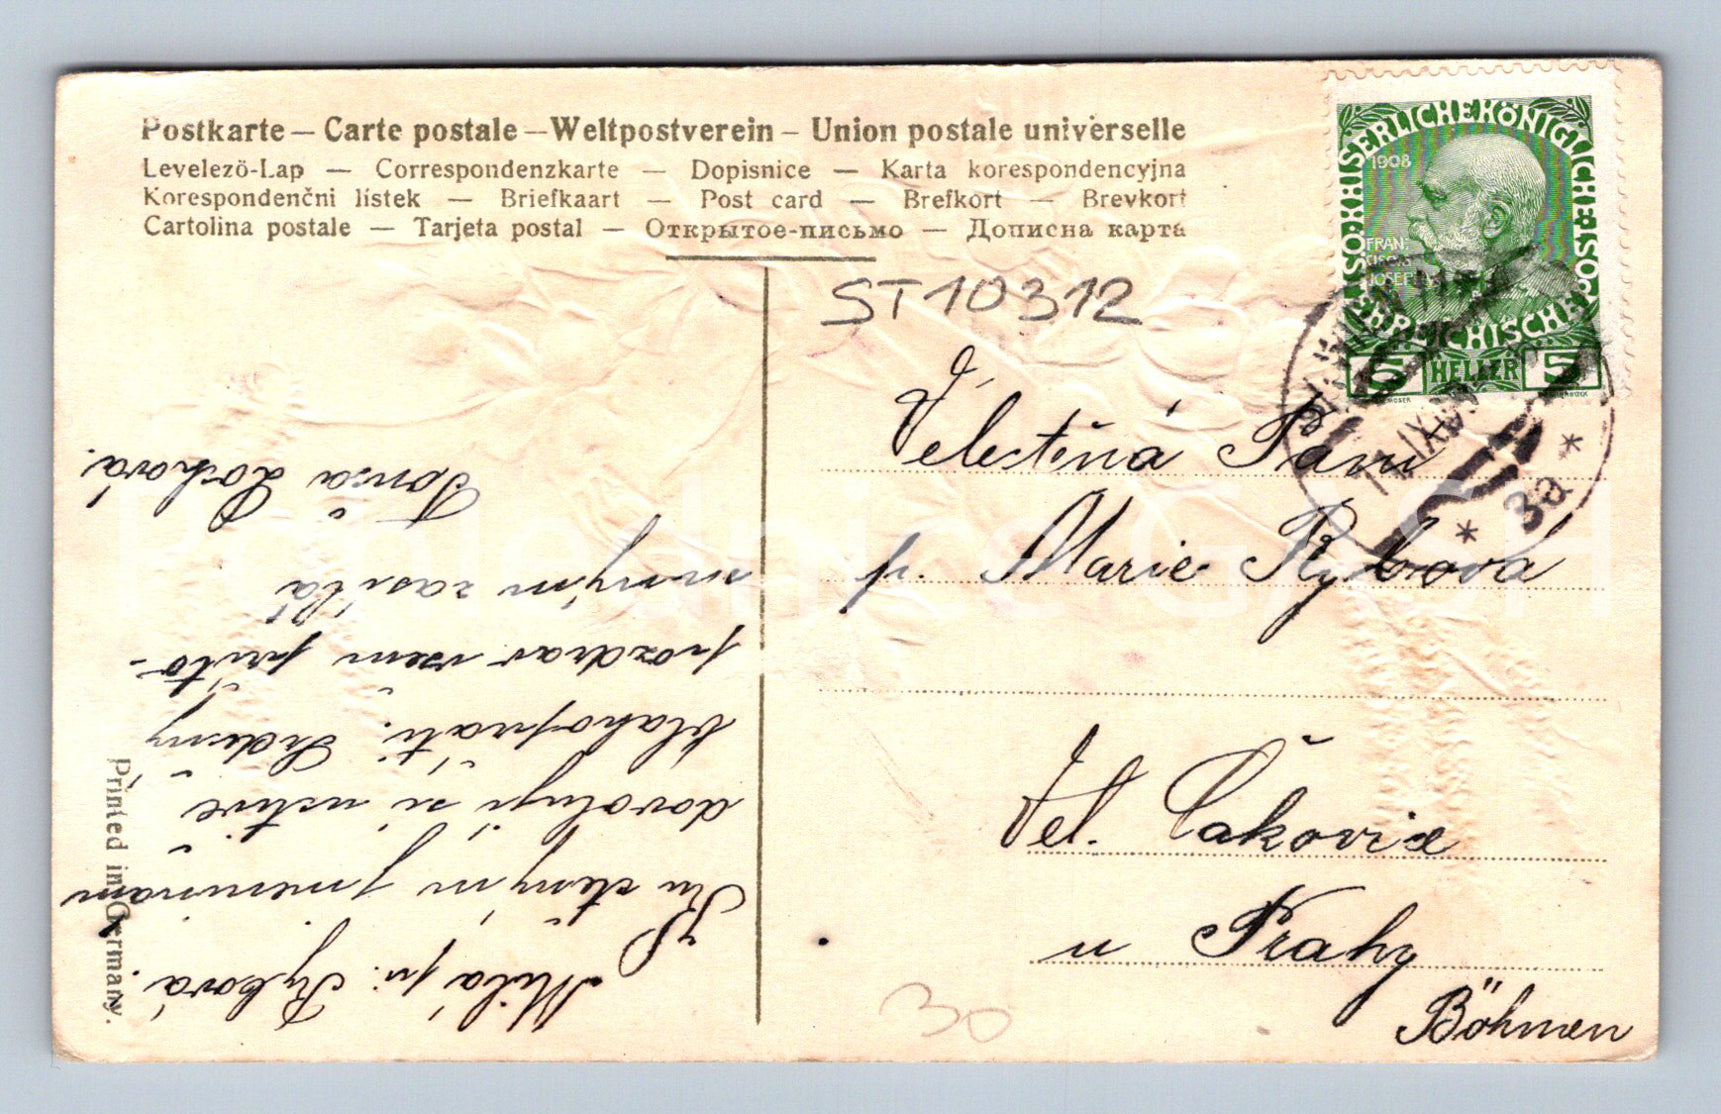 Postkarte – Carte postale – Weltpostverein – Union postale universelle
Levelező-Lap — Correspondenzkarte — Dopisnice — Karta korespondencyjna
Korespondenční lístek — Briefkaart — Post card — Brefkort — Brevkort
Cartolina postale — Tarjeta postal — Открытое-письмо — Дописна карта
KAISERLICHE KÖNIGLICHE ÖSTERREICHISCHE
1908
FRAN-
CISCVS
JOSEPHVS
5 HELLER 5
ST10312
11.IX.09
* 3a *
Velectěná Paní
p. Marie Rybová
Vel. Čakovice
u Prahy
Böhmen
30
Milá pí. Rybová.
K ctěným jmeninám
dovoluji si uctivě
blahopřáti. Srdečný
pozdrav všem příto-
mným zasílá
Printed in Germany.